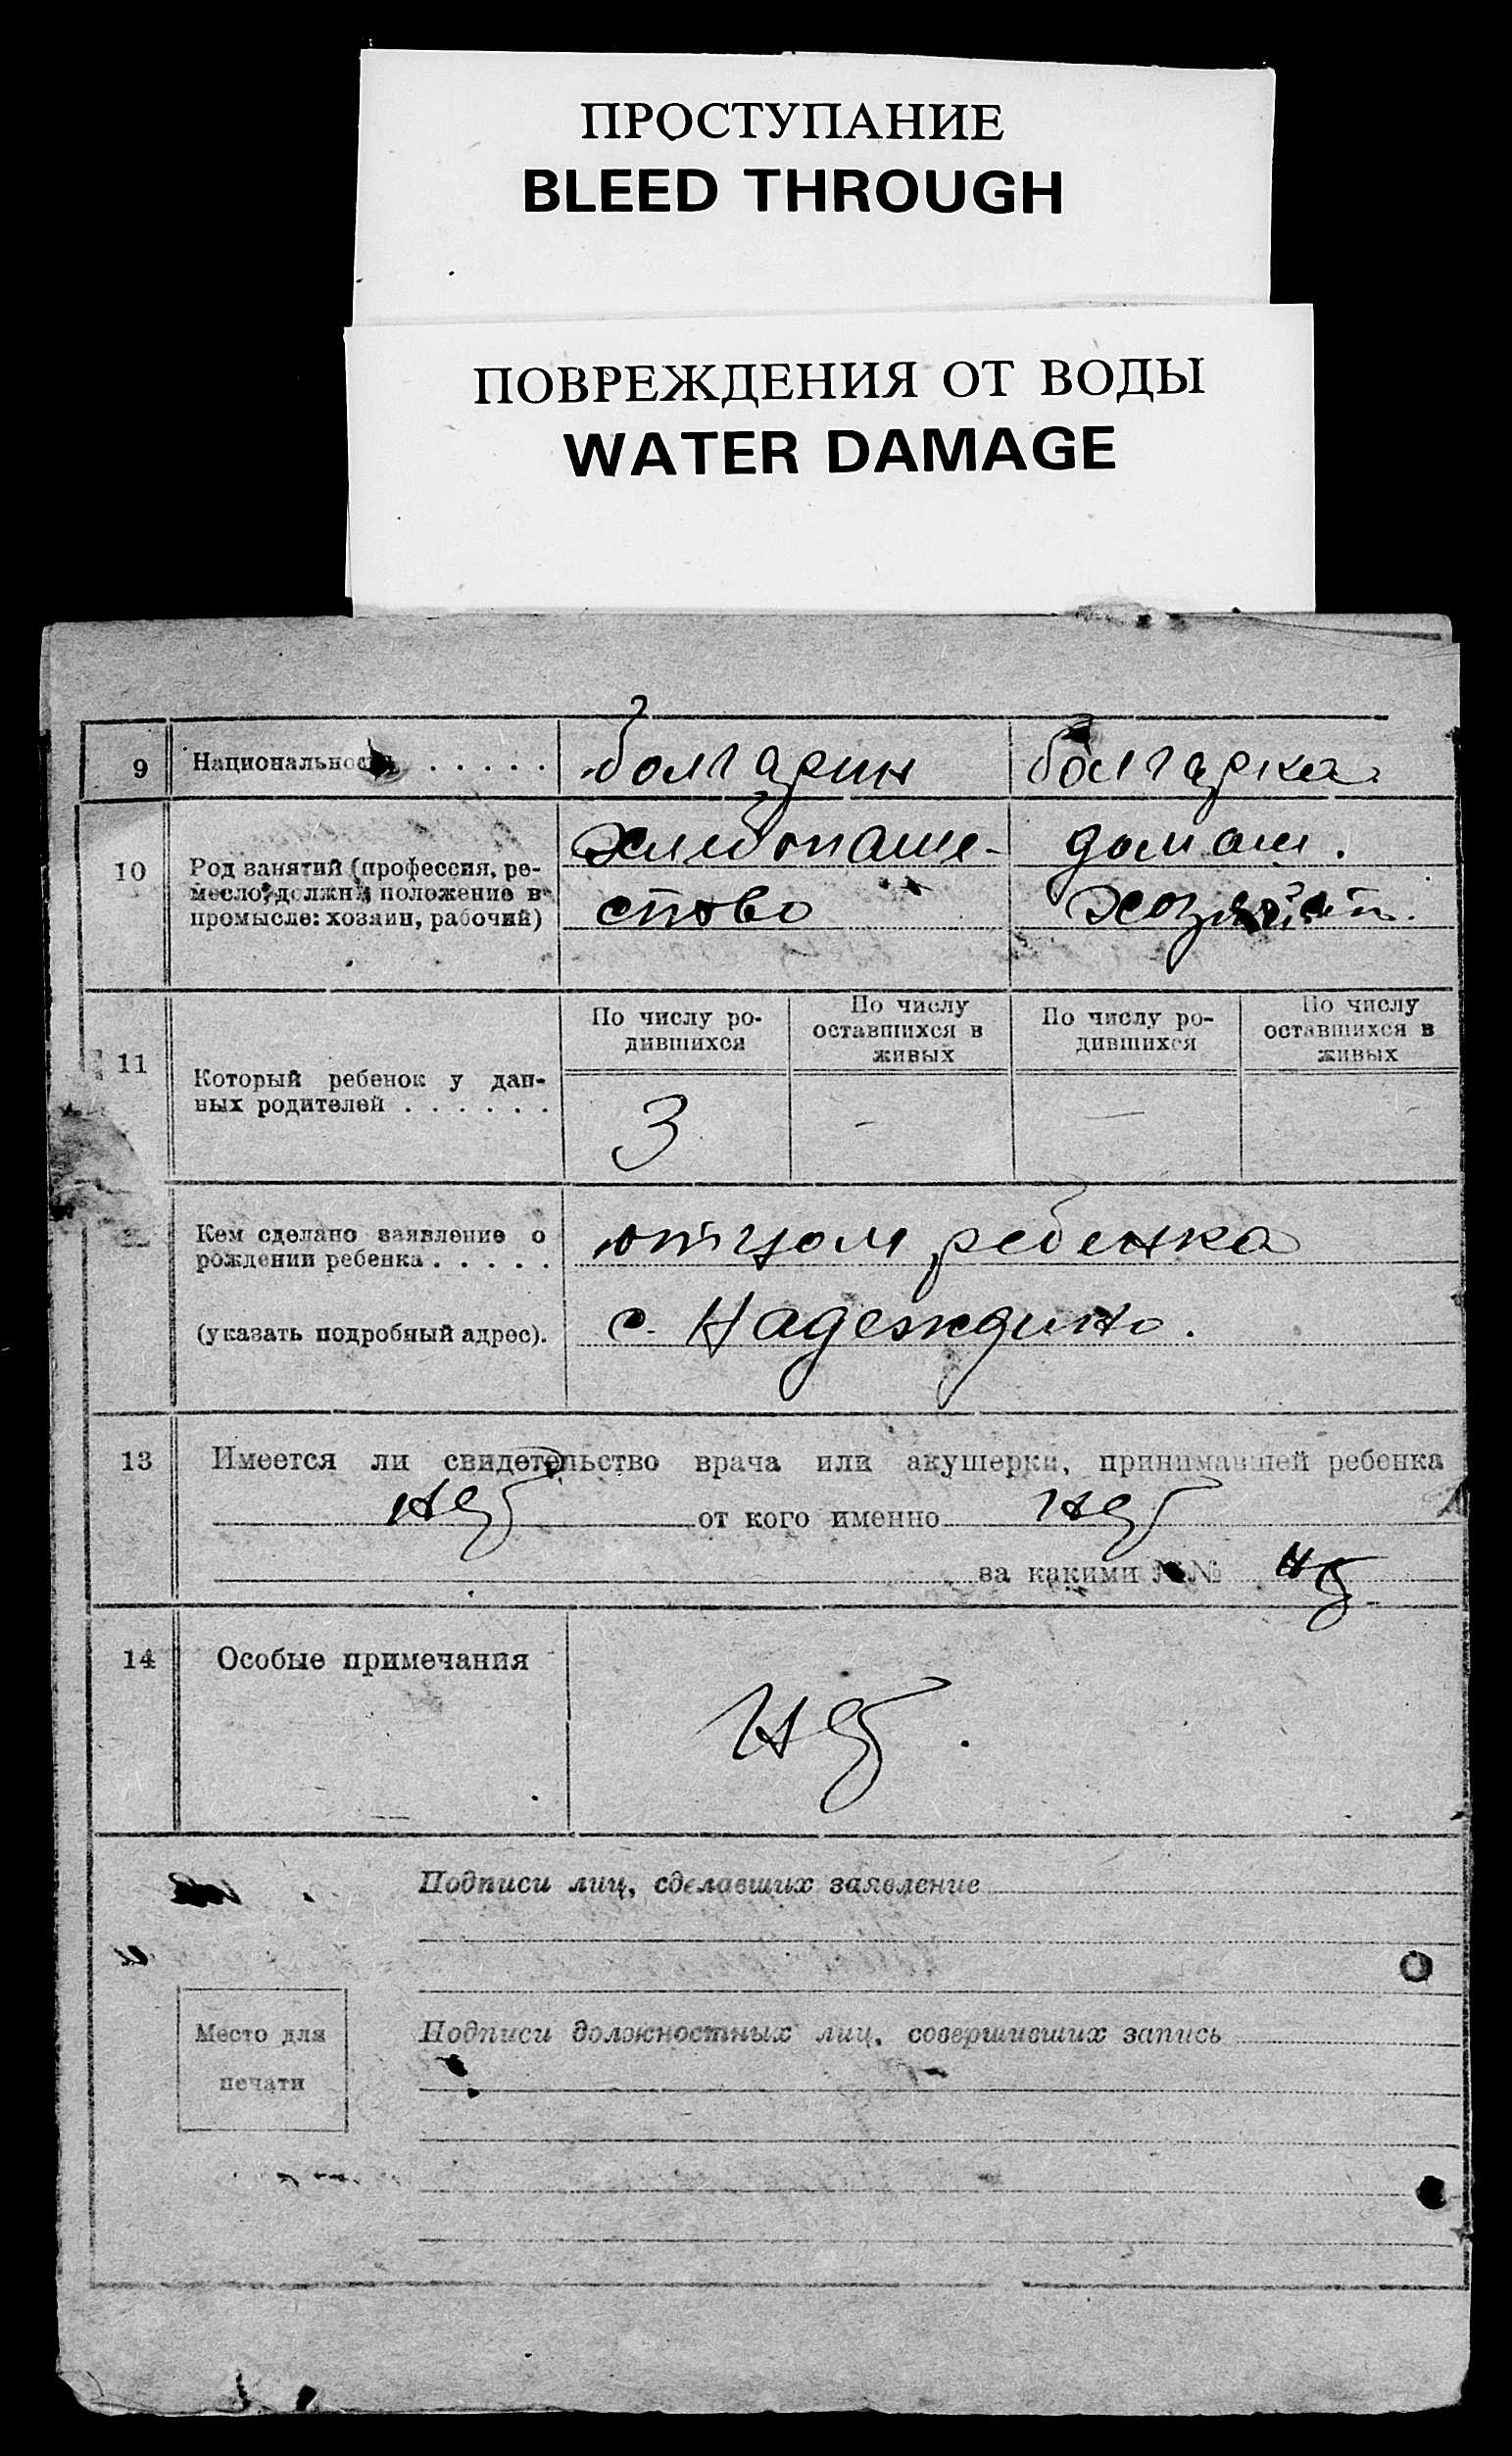 ПРОСТУПАНИЕ
BLEED THROUGH
ПОВРЕЖДЕНИЯ ОТ ВОДЫ
WATER DAMAGE
9 Национальность . . . . . болгарин болгарка
10 Род занятий (профессия, ре-
месло, должн., положение в
промысле: хозяин, рабочий)
хлебопаше- домаш.
ство хозяйст.
11 Который ребенок у дан-
ных родителей . . . . . .
По числу ро-
дившихся
По числу
оставшихся в
живых
По числу ро-
дившихся
По числу
оставшихся в
живых
3 - —
Кем сделано заявление о
рождении ребенка . . . . .
(указать подробный адрес).
отцом ребенка
с. Надеждино.
13 Имеется ли свидетельство врача или акушерки, принимавшей ребенка
нет от кого именно нет
за какими №№ нет
14 Особые примечания нет.
Подписи лиц, сделавших заявление
Место для
печати
Подписи должностных лиц, совершивших запись